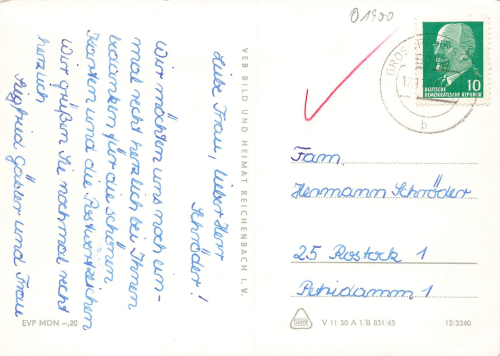 Liebe Frau, lieber Herr
Schröder!
Wir möchten uns noch ein-
mal recht herzlich bei Ihnen
bedanken für die schönen
Karten und die Postwertzeichen
Wir grüßen Sie nochmal recht
herzlich
Siegfried und Frau
VEB BILD UND HEIMAT REICHENBACH I. V.
EVP MDN –,20
O 1900
DEUTSCHE
DEMOKRATISCHE REPUBLIK
10
b
Fam.
Hermann Schröder
25 Rostock 1
Petridamm 1
V 11 50 A 1/B 851/65
12/3340